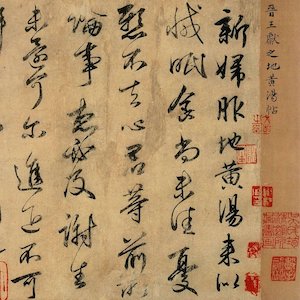 晋王献之地黄汤帖
新婦服地黄湯来似
減眠食尚未佳憂
懸不去心君等前所
論事想必及謝生
未還可尔進退不可